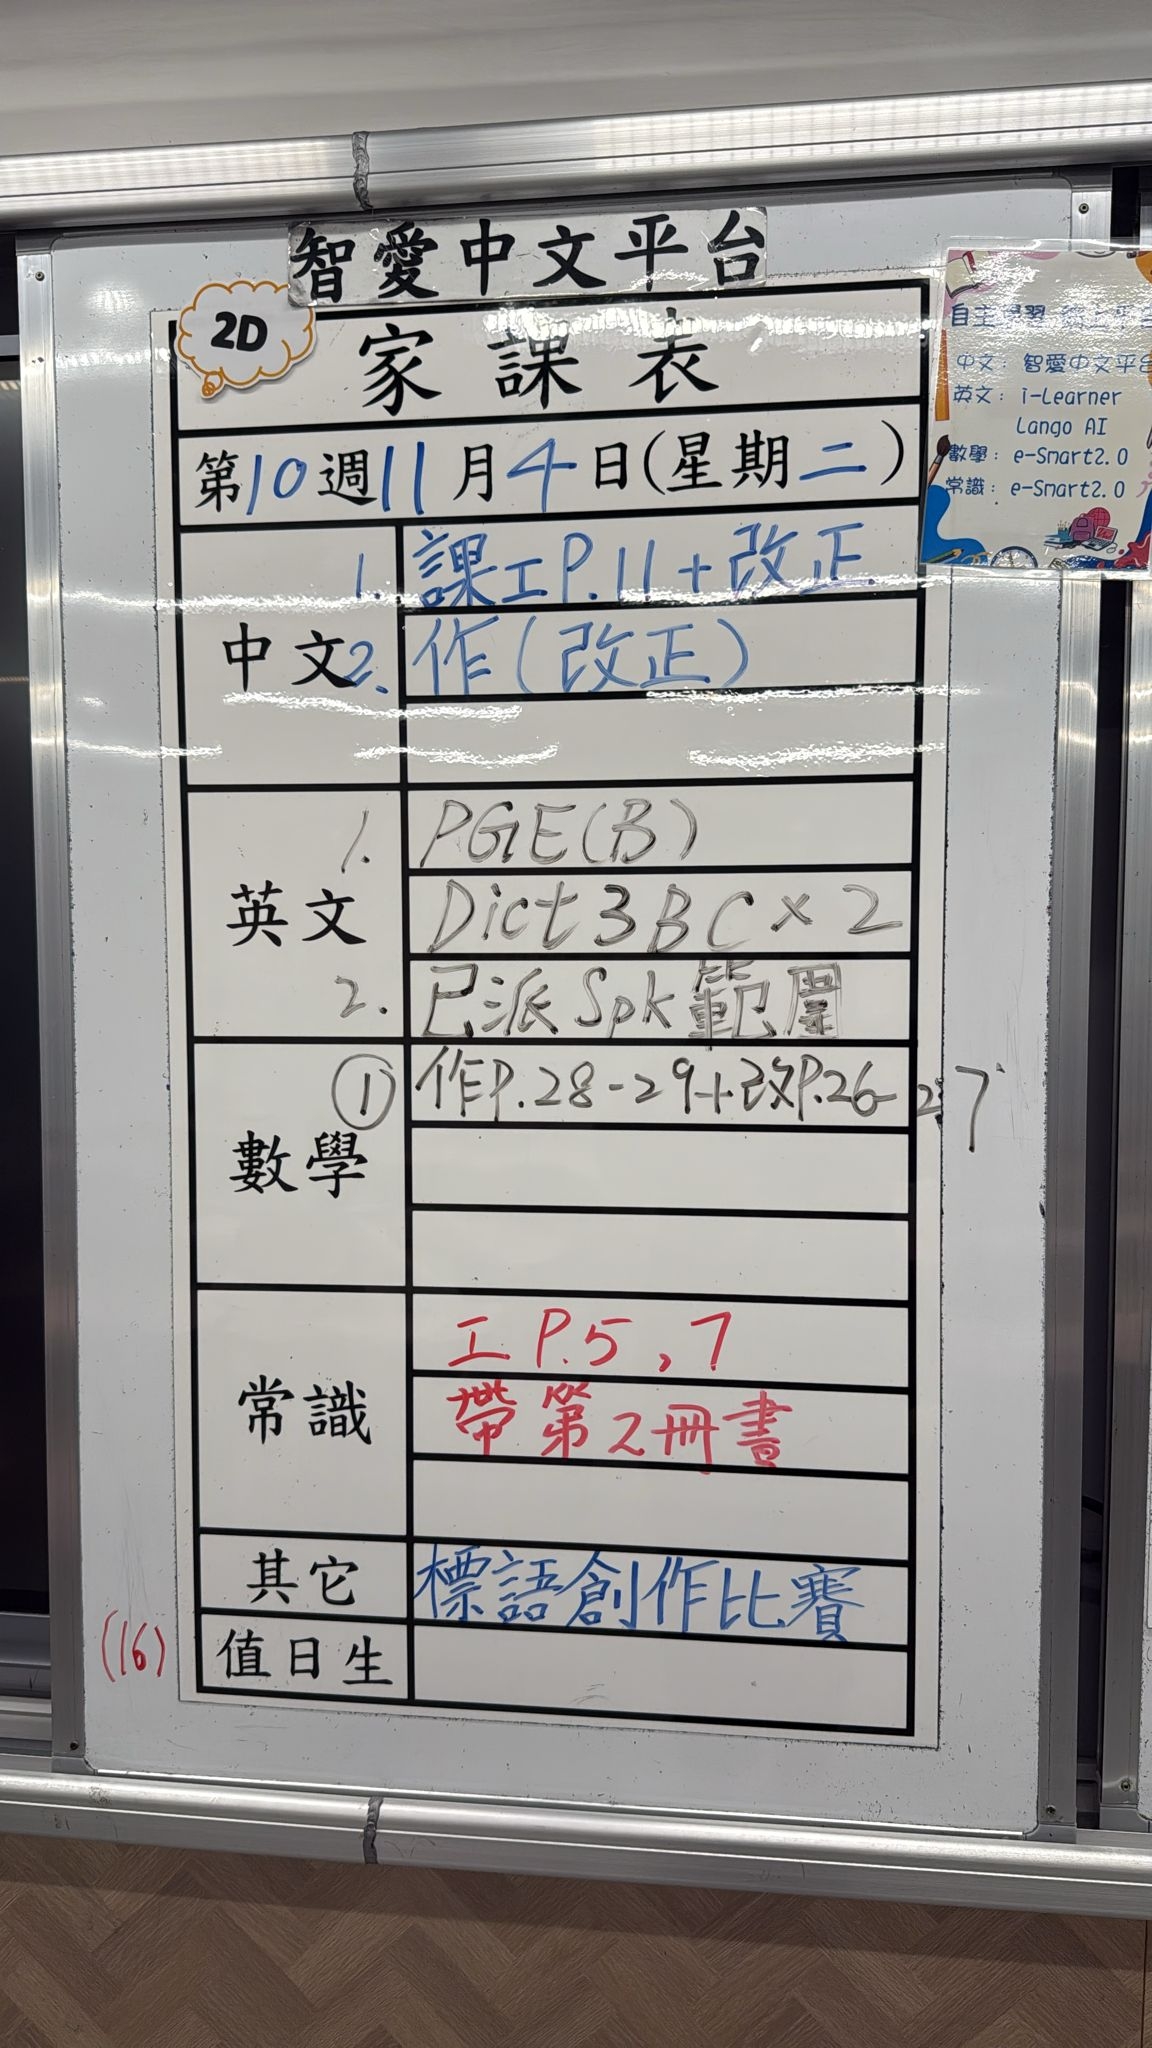 智愛中文平台
2D
家課表
第10週11月4日(星期二)
中文
1. 課工P.11+改正
2. 作(改正)
英文
1. PGE(B)
Dict 3BC×2
2. 已派Spk範圍
數學
① 作P.28-29+改P.26-27
常識
工P.5,7
帶第2冊書
其它
標語創作比賽
值日生
(16)
自主學習 平台
中文：智愛中文平台
英文：i-Learner
Lango AI
數學：e-Smart2.0
常識：e-Smart2.0